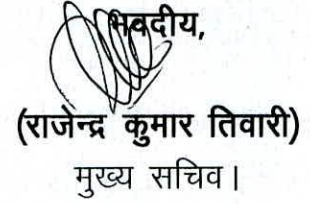 भवदीय,
(राजेन्द्र कुमार तिवारी)
मुख्य सचिव।